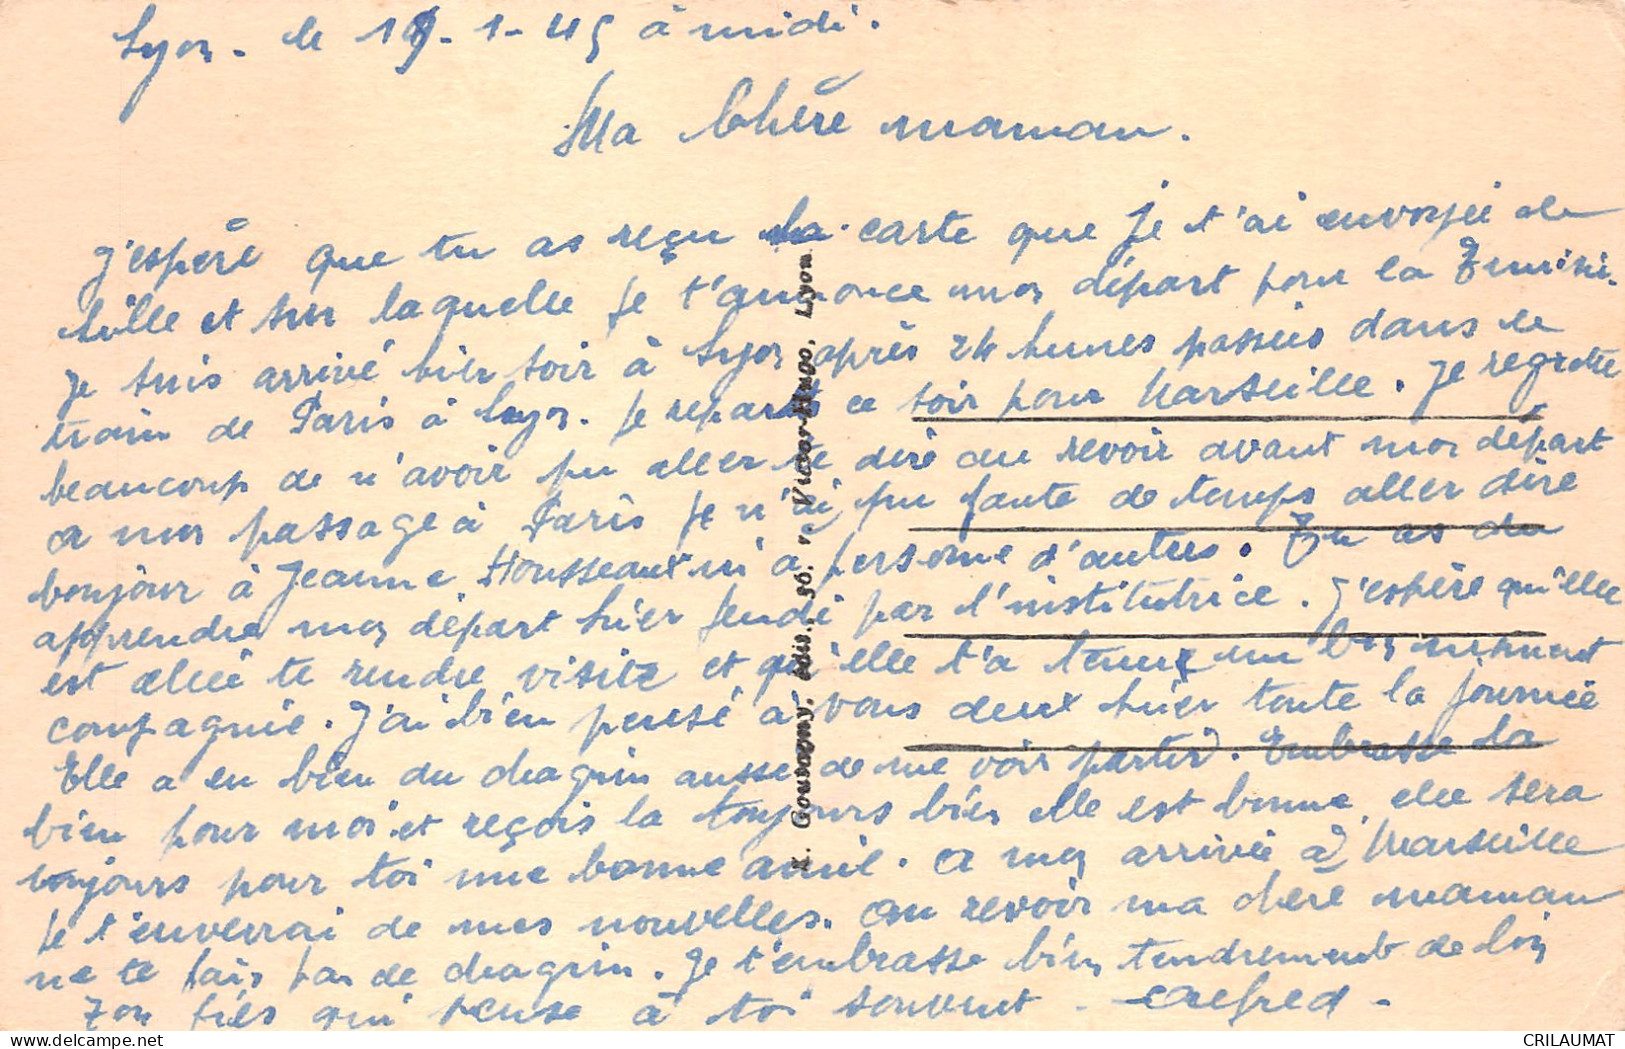 Lyon - le 19-1-45 à midi.
Ma Chère maman.
J'espère que tu as reçu la carte que je t'ai envoyée de
Lille et sur laquelle je t'annonce mon départ pour la Tunisie.
Je suis arrivé hier soir à Lyon après 24 heures passées dans le
train de Paris à Lyon. Je repars ce soir pour Marseille. Je regrette
beaucoup de n'avoir pu aller te dire au revoir avant mon départ
a mon passage à Paris Je n'ai pu faute de temps aller dire
bonjour à Jeanne Housseaux ni à personne d'autres. Tu as du
apprendre mon départ hier Jeudi par l'institutrice. J'espère qu'elle
est allée te rendre visite et qu'elle t'a tenu un bon moment
compagnie. J'ai bien pensé à vous deux hier toute la journée
Elle a eu bien du chagrin aussi de me voir partir. Embrasse la
bien pour moi et reçois la toujours bien elle est bonne, elle sera
toujours pour toi une bonne amie. A mon arrivée à Marseille
Je t'enverrai de mes nouvelles. Au revoir ma chère maman
ne te fais pas de chagrin. Je t'embrasse bien tendrement de loin
Ton fils qui pense à toi souvent - Alfred -
X. Goutagny, édit. 56, r. Victor-Hugo, Lyon
CRILAUMAT